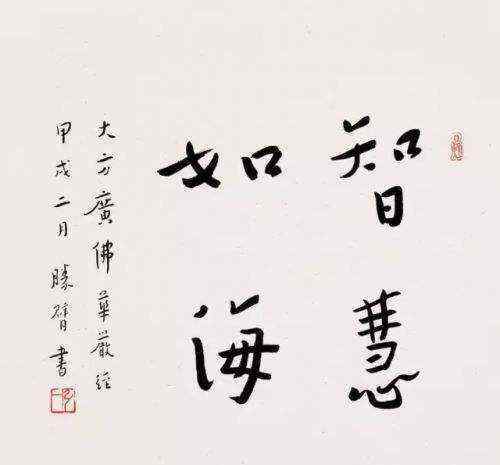 智慧
如海
大方廣佛華嚴經
甲戌二月 勝𬒗書